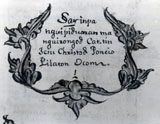 Saringa
nguipiduman ma
nguixongod Cartin
Jesu Christod Poncio
Pilaton Dcoma